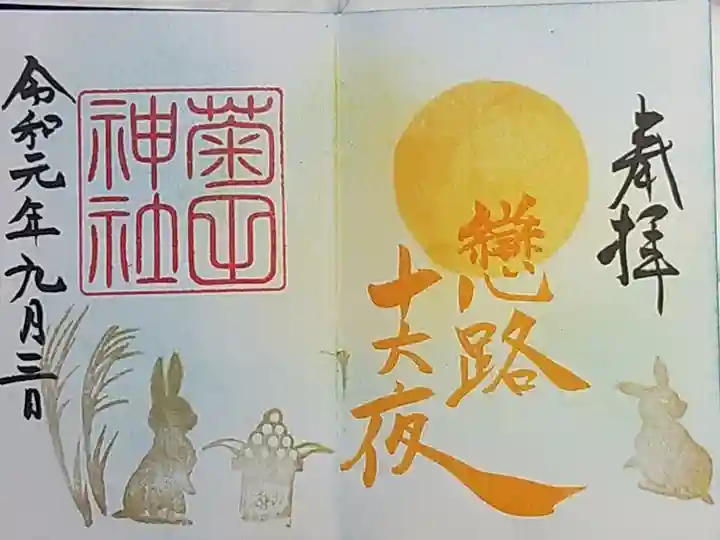 奉拝
戀路
十六夜
菊田
神社
令和元年九月三日